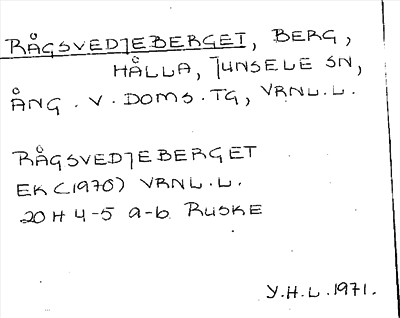 RÅGSVEDJEBERGET, BERG,
HÅLLA, JUNSELE SN,
ÅNG. V. DOMS. TG, VRNL.L.
RÅGSVEDJEBERGET
EK (1970) VRNL.L.
20 H 4-5 a-b RUSKE
Y.H.L. 1971.